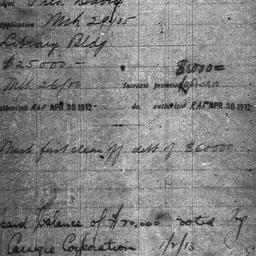 Pres. Davis
Application Mch 29/05
Library Bldg
$25000 — $5000 =
Mch 26/06 Increase promised
Authorized R.A.F. APR 30 1912 - do. authorized R.A.F. APR 30 1912
Must first clear off debt of $60000
balance of $20,000 voted by
Carnegie Corporation 1/2/13